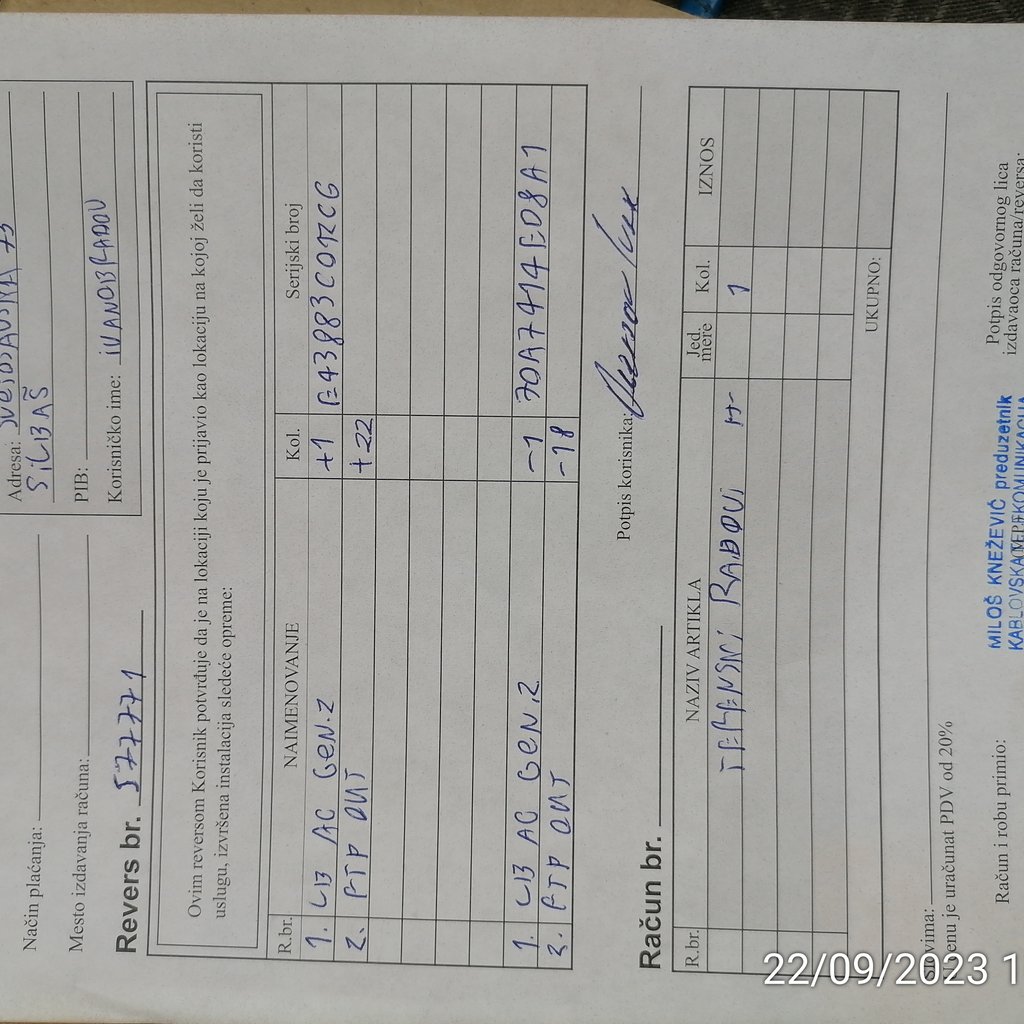 Adresa:
SILBAŠ
PIB:
Korisničko ime: IVANOBRADOV
Način plaćanja:
Mesto izdavanja računa:
Revers br. 577771
Ovim reversom Korisnik potvrđuje da je na lokaciji koju je prijavio kao lokaciju na kojoj želi da koristi
uslugu, izvršena instalacija sledeće opreme:
R.br. NAIMENOVANJE Kol. Serijski broj
1. LB AC GEN.2 +1
2. FTP OUT +22
1. LB AC GEN.2 -1 70A7414ED8A1
2. FTP OUT -18
Potpis korisnika:
Račun br.
R.br. NAZIV ARTIKLA Jed. mere Kol. IZNOS
TERENSKI RADOVI 1
UKUPNO:
enu je uračunat PDV od 20%
Račun i robu primio:
MILOŠ KNEŽEVIĆ preduzetnik
Potpis odgovornog lica
izdavaoca računa/reversa:
22/09/2023 1